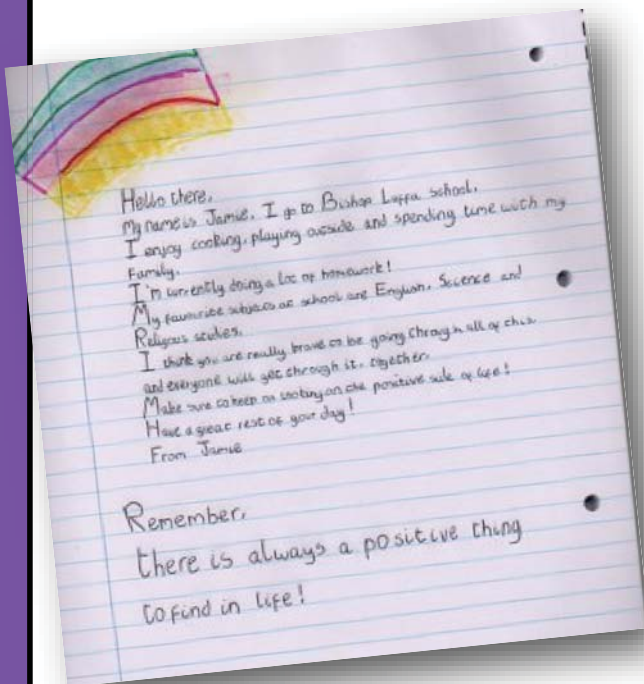 Hello there,
My name is Jamie. I go to Bishop Luffa school.
I enjoy cooking, playing outside and spending time with my
Family.
I'm currently doing a lot of homework!
My favourite subjects at school are English, Science and
Religious studies.
I think you are really brave to be going through all of this
and everyone will get through it, together.
Make sure to keep on looking on the positive side of life!
Have a great rest of your day!
From Jamie
Remember,
there is always a positive thing
to find in life!